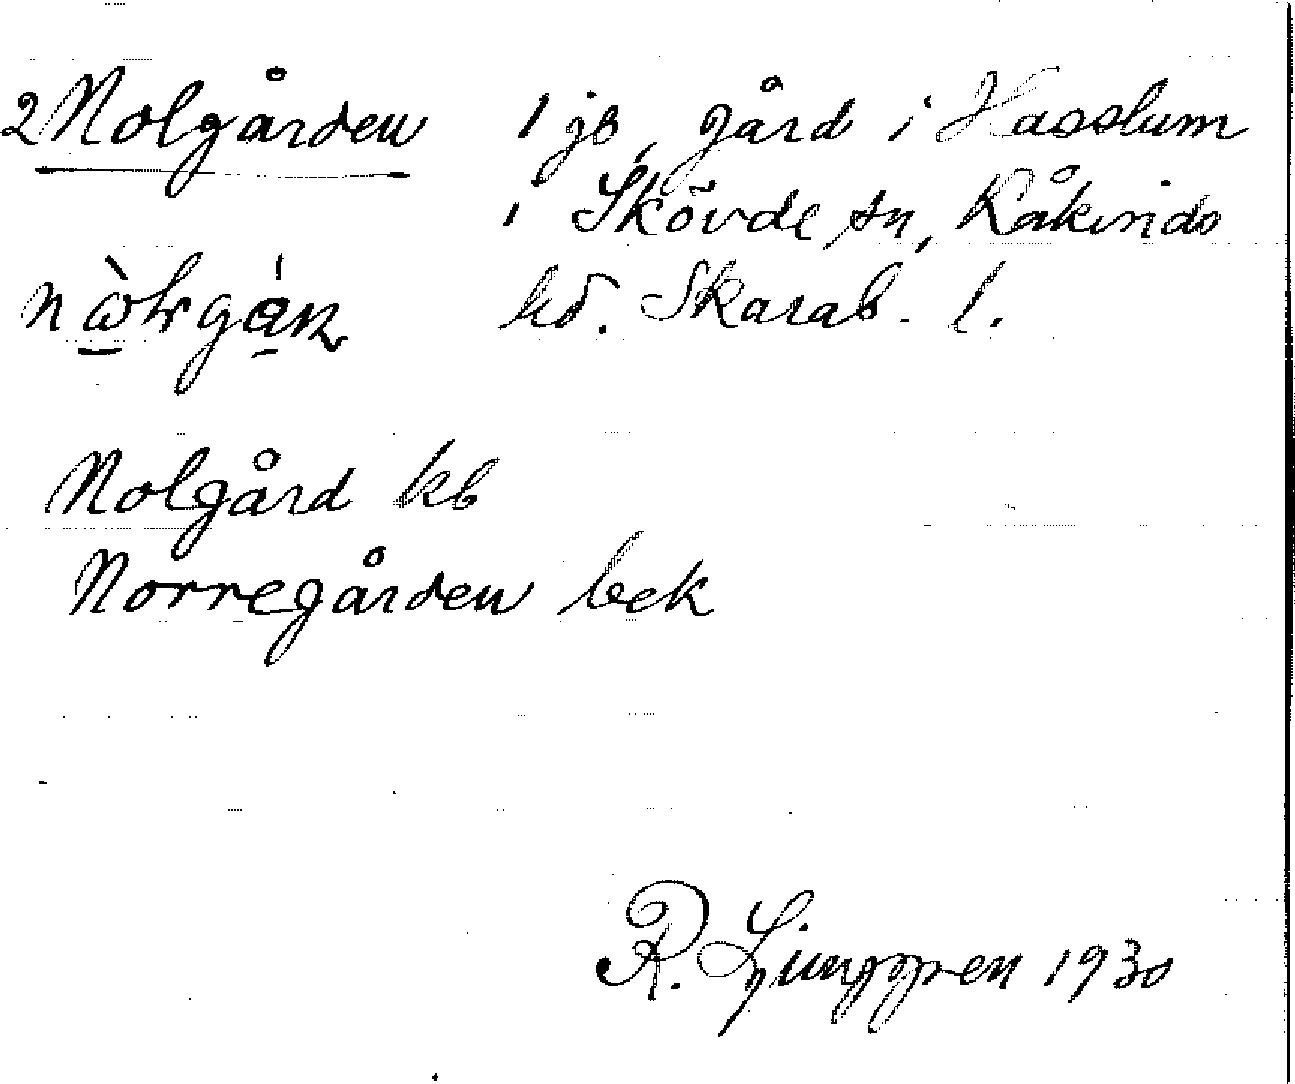 2 Nolgården 1 jb, gård i Hasslum
i Skövde sn, Kåkinds
hd. Skarab. l.
Nolgård kb
Norregården bek
R. Ljunggren 1930